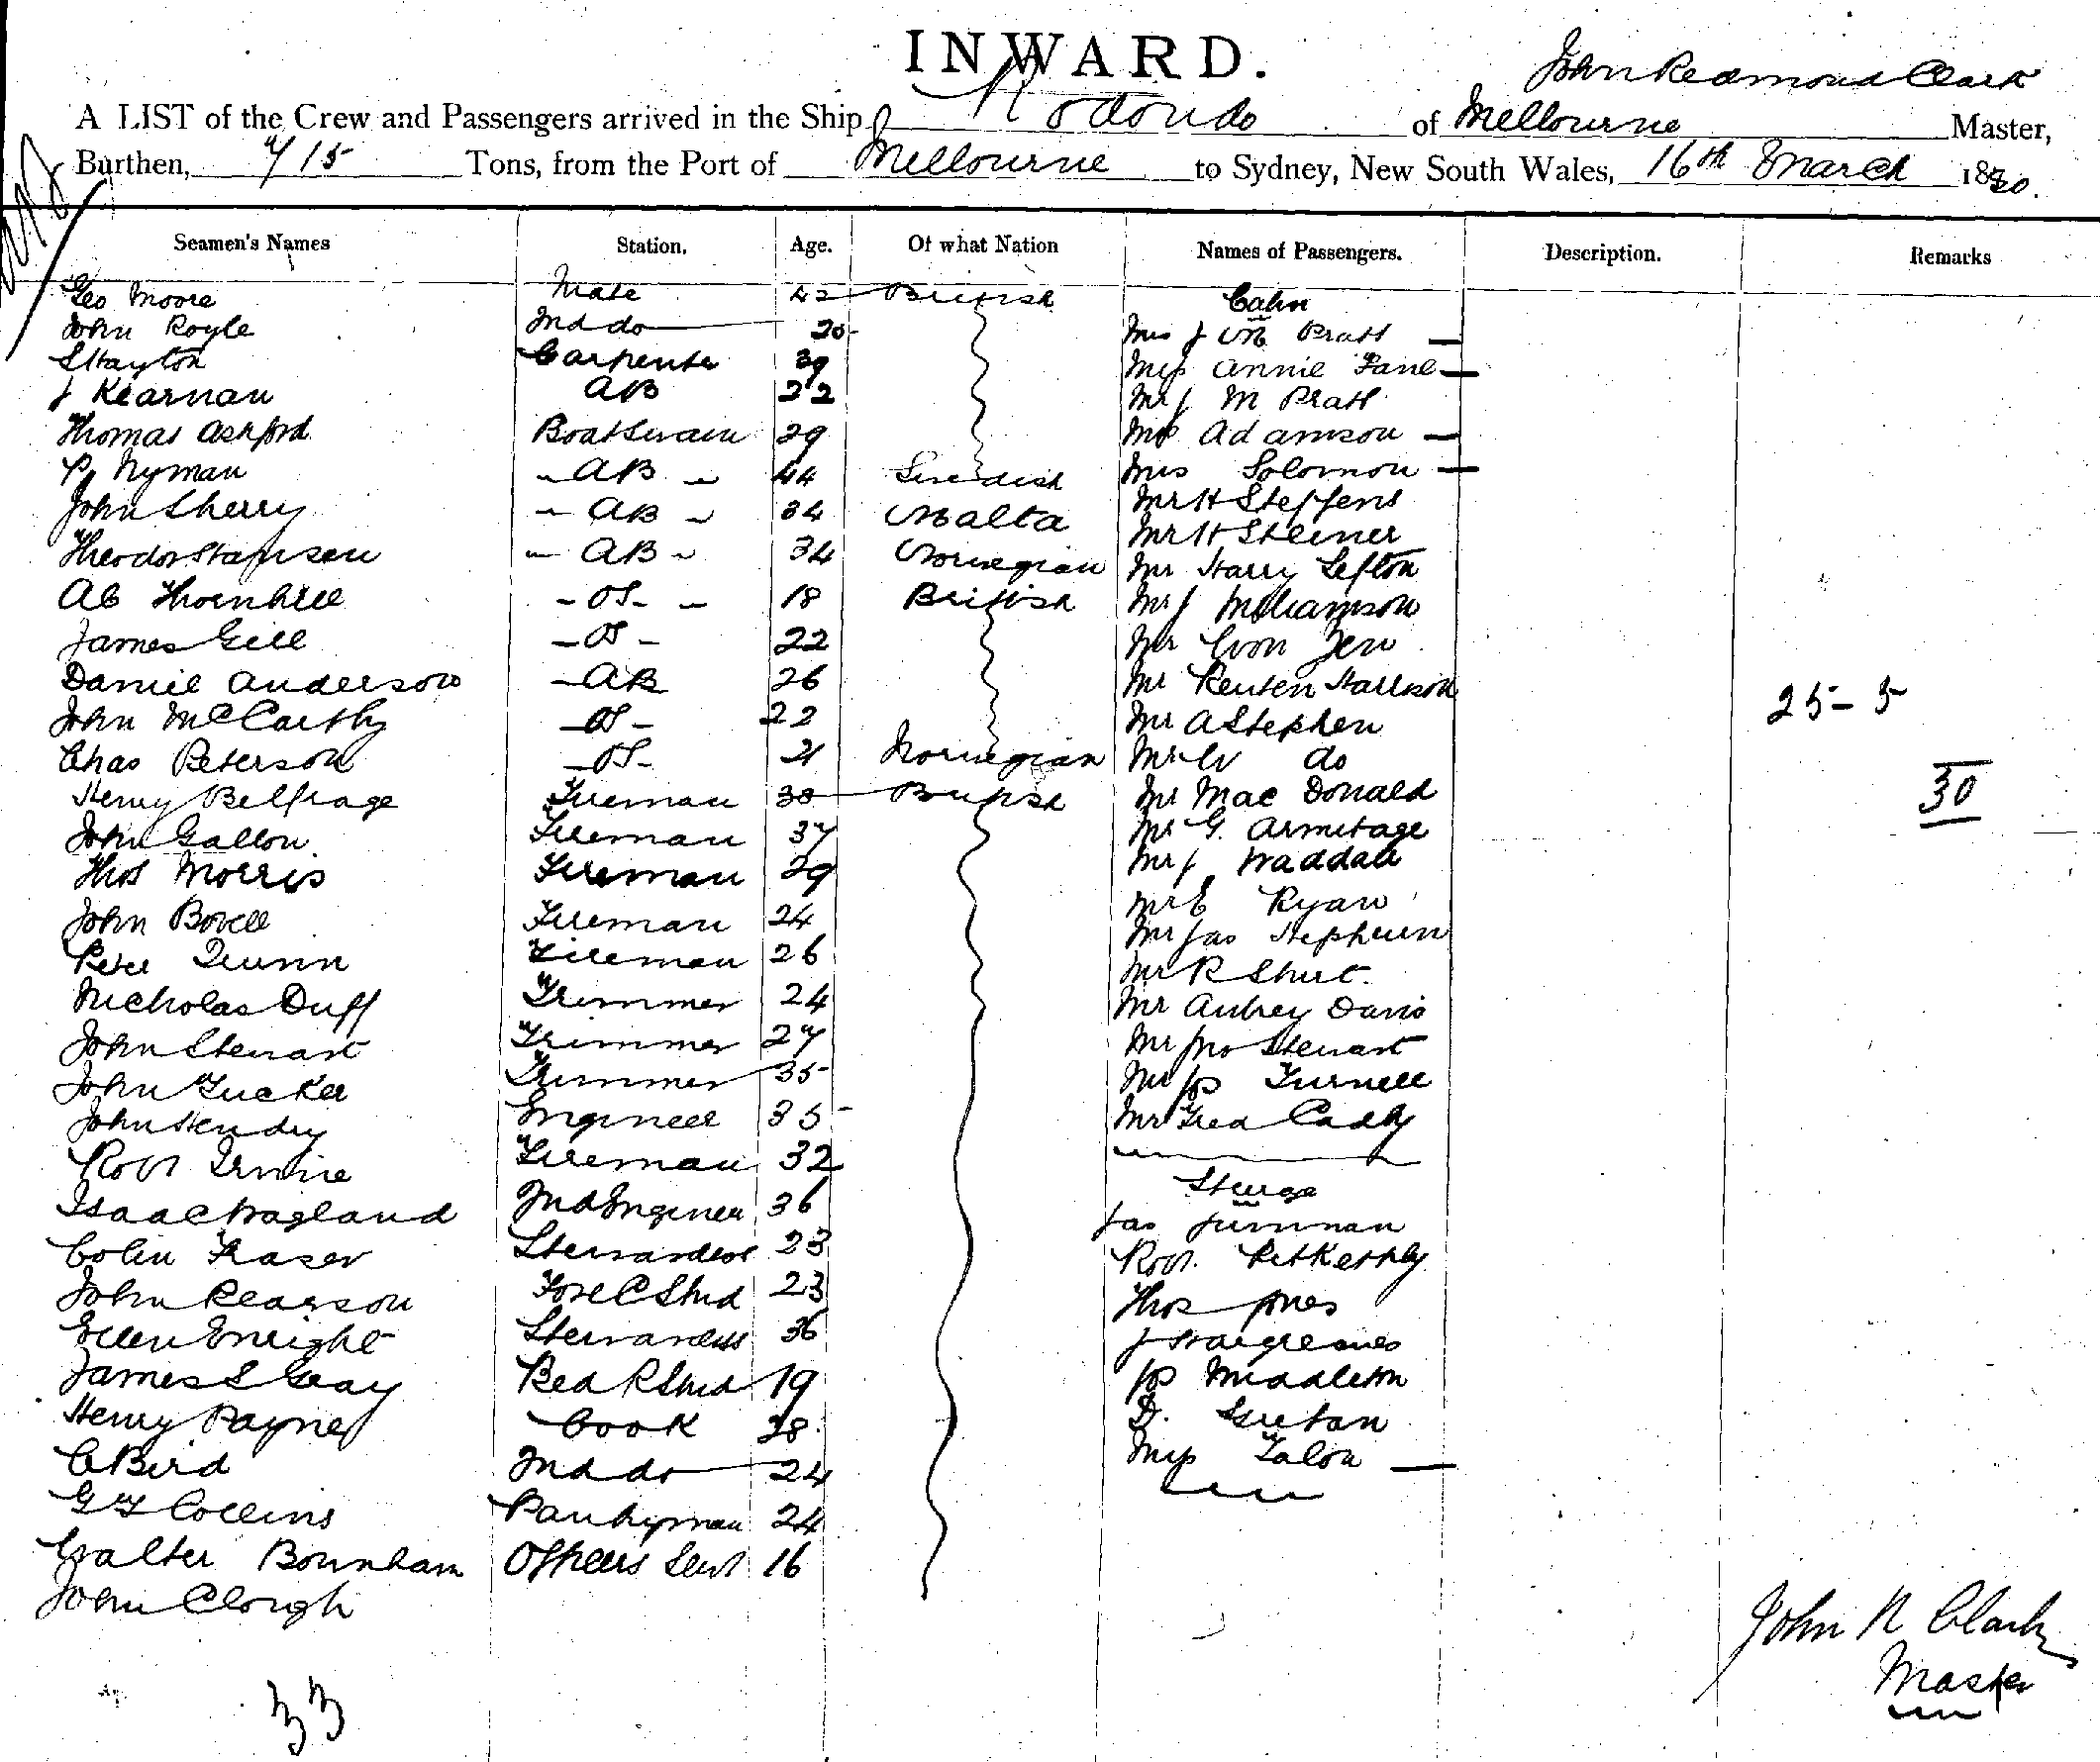 INWARD.
John Redmond Clark
A LIST of the Crew and Passengers arrived in the Ship Rodondo of Melbourne Master,
Burthen, 715 Tons, from the Port of Melbourne to Sydney, New South Wales, 16th March 1880.
Seamen's Names Station. Age. Of what Nation Names of Passengers. Description. Remarks
Geo Moore Mate 42 British Cabin
John Royle 2nd do 20 Mrs J M Pratt
S Hayton Carpenter 39 Miss Annie Lane
J Kearnan AB 22 Mr J M Pratt
Thomas Ashford Boatswain 29 Adamson
P Nyman AB 44 Swedish Mrs Solomon
John Sherry AB 34 Malta Mr H Steffens
Theodor AB 34 Norwegian Mr H Steiner
Mr Harry Lefton
Ab Thornhill OS 18 British Mr J
James Gill OS 22 Mr
Daniel Anderson AB 26 Mr Reuben
John McCarthy OS 22 Mr A Stephen
25 - 5
Chas Peterson OS 21 Norwegian Mr W do
Henry Belfrage Fireman 30 British Mr Mac Donald
30
John Gallon Fireman 37 Mr G. Armitage
Thos Morris Fireman 29 Mr J Waddall
John Bovell Fireman 24 Mr E Ryan
Mr Jas
Peter Dunn Fireman 26 Mr R
Nicholas Duff Trimmer 24 Mr Aubrey Davis
John Stewart Trimmer 27 Mr Jno Stewart
John Tucker Trimmer 35 Mr Jos Furnell
John Hendry Engineer 35 Mr Fred Cady
Robt Irvine Fireman 32
Isaac Wagland 2nd Engineer 36 Steerage
Colin Fraser 23 Jas
John Pearson Fore C Stwd 23 Robt. Petkethly
Ellen Enright Stewardess 36 Thos Jones
James S Gray Bed R Stwd 19 J Hargreaves
Henry Payne Cook 28 Jos Middleton
C Bird 2nd do 24 D.
G F Collins Pantryman 24 Miss
Walter Bournham Officers Servt 16
John Clough
John R Clark
Master
33